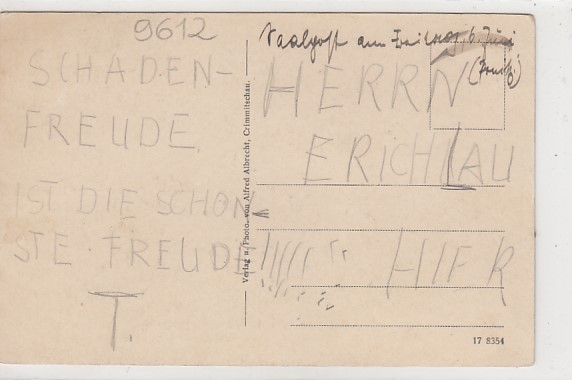 9612
SCHADEN-
FREUDE
IST DIE SCHÖN
STE FREUDE!!!!!!
T.
Verlag u. Photo. von Alfred Albrecht, Crimmitschau.
am 6. Juni
HERRN
ERICH LAU
HIER
17 8354